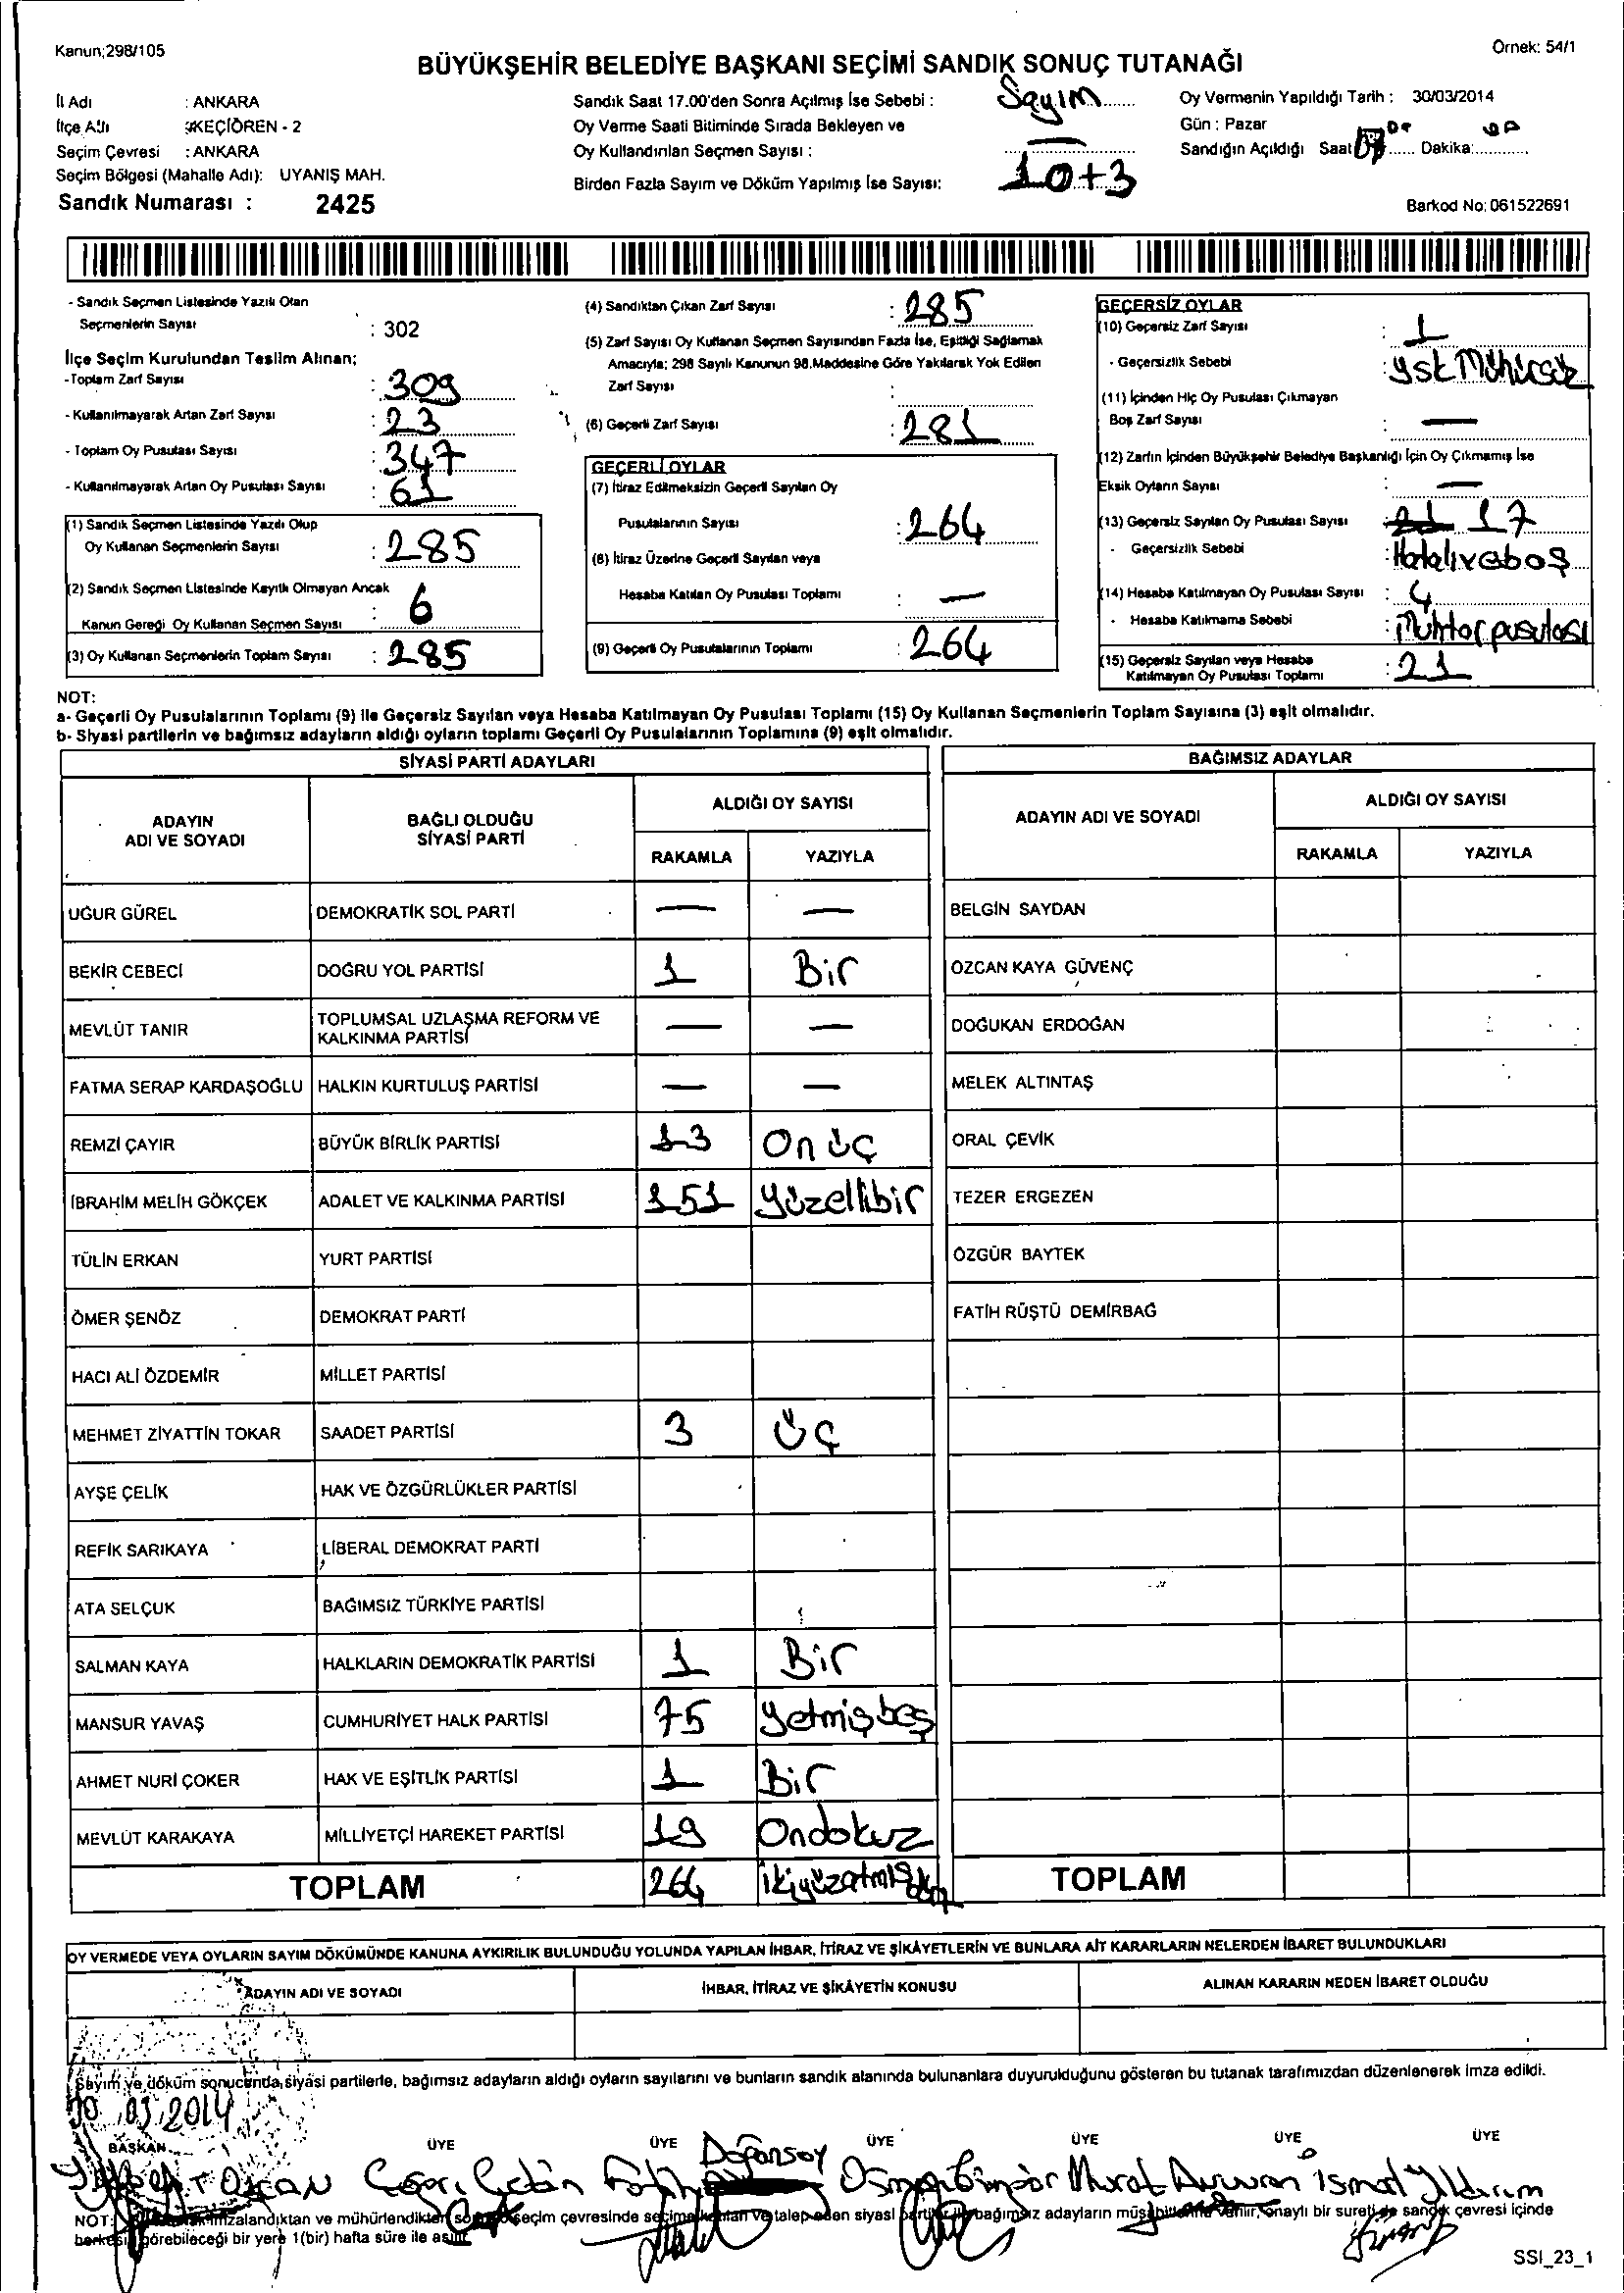 Kanun;298/105
Örnek: 54/1
BÜYÜKŞEHİR BELEDİYE BAŞKANI SEÇİMİ SANDIK SONUÇ TUTANAĞI
İl Adı : ANKARA
İlçe Adı : KEÇİÖREN - 2
Seçim Çevresi : ANKARA
Seçim Bölgesi (Mahalle Adı): UYANIŞ MAH.
Sandık Numarası : 2425
Sandık Saat 17.00'den Sonra Açılmış İse Sebebi : Sayım
Oy Verme Saati Bitiminde Sırada Bekleyen ve
Oy Kullandırılan Seçmen Sayısı : —
Birden Fazla Sayım ve Döküm Yapılmış İse Sayısı: 10+3
Oy Vermenin Yapıldığı Tarih : 30/03/2014
Gün : Pazar
Sandığın Açıldığı Saat Dakika:
Barkod No: 061522691
- Sandık Seçmen Listesinde Yazılı Olan
Seçmenlerin Sayısı : 302
İlçe Seçim Kurulundan Teslim Alınan;
-Toplam Zarf Sayısı : 309
- Kullanılmayarak Artan Zarf Sayısı : 23
- Toplam Oy Pusulası Sayısı : 347
- Kullanılmayarak Artan Oy Pusulası Sayısı : 61
(1) Sandık Seçmen Listesinde Yazılı Olup
Oy Kullanan Seçmenlerin Sayısı : 285
(2) Sandık Seçmen Listesinde Kayıtlı Olmayan Ancak
Kanun Gereği Oy Kullanan Seçmen Sayısı : 6
(3) Oy Kullanan Seçmenlerin Toplam Sayısı : 285
(4) Sandıktan Çıkan Zarf Sayısı : 285
(5) Zarf Sayısı Oy Kullanan Seçmen Sayısından Fazla İse, Eşitliği Sağlamak
Amacıyla; 298 Sayılı Kanunun 98.Maddesine Göre Yakılarak Yok Edilen
Zarf Sayısı :
(6) Geçerli Zarf Sayısı : 281
GEÇERLİ OYLAR
(7) İtiraz Edilmeksizin Geçerli Sayılan Oy
Pusulalarının Sayısı : 264
(8) İtiraz Üzerine Geçerli Sayılan veya
Hesaba Katılan Oy Pusulası Toplamı : —
(9) Geçerli Oy Pusulalarının Toplamı : 264
GEÇERSİZ OYLAR
(10) Geçersiz Zarf Sayısı : 1
- Geçersizlik Sebebi : ysk Mühürsüz
(11) İçinden Hiç Oy Pusulası Çıkmayan
Boş Zarf Sayısı : —
(12) Zarfın İçinden Büyükşehir Belediye Başkanlığı İçin Oy Çıkmamış İse
Eksik Oyların Sayısı : —
(13) Geçersiz Sayılan Oy Pusulası Sayısı : 21 17
- Geçersizlik Sebebi : Hatalıveboş
(14) Hesaba Katılmayan Oy Pusulası Sayısı : 4
- Hesaba Katılmama Sebebi : Muhtar pusulası
(15) Geçersiz Sayılan veya Hesaba
Katılmayan Oy Pusulası Toplamı : 21
NOT:
a- Geçerli Oy Pusulalarının Toplamı (9) ile Geçersiz Sayılan veya Hesaba Katılmayan Oy Pusulası Toplamı (15) Oy Kullanan Seçmenlerin Toplam Sayısına (3) eşit olmalıdır.
b- Siyasi partilerin ve bağımsız adayların aldığı oyların toplamı Geçerli Oy Pusulalarının Toplamına (9) eşit olmalıdır.
SİYASİ PARTİ ADAYLARI
BAĞIMSIZ ADAYLAR
ADAYIN ADI VE SOYADI
BAĞLI OLDUĞU SİYASİ PARTİ
ALDIĞI OY SAYISI
RAKAMLA YAZIYLA
ADAYIN ADI VE SOYADI
ALDIĞI OY SAYISI
RAKAMLA YAZIYLA
UĞUR GÜREL DEMOKRATİK SOL PARTİ — — BELGİN SAYDAN
BEKİR CEBECİ DOĞRU YOL PARTİSİ 1 Bir ÖZCAN KAYA GÜVENÇ
MEVLÜT TANIR TOPLUMSAL UZLAŞMA REFORM VE KALKINMA PARTİSİ — — DOĞUKAN ERDOĞAN
FATMA SERAP KARDAŞOĞLU HALKIN KURTULUŞ PARTİSİ — — MELEK ALTINTAŞ
REMZİ ÇAYIR BÜYÜK BİRLİK PARTİSİ 13 On üç ORAL ÇEVİK
İBRAHİM MELİH GÖKÇEK ADALET VE KALKINMA PARTİSİ 151 yüzellibir TEZER ERGEZEN
TÜLİN ERKAN YURT PARTİSİ ÖZGÜR BAYTEK
ÖMER ŞENÖZ DEMOKRAT PARTİ FATİH RÜŞTÜ DEMİRBAĞ
HACI ALİ ÖZDEMİR MİLLET PARTİSİ
MEHMET ZİYATTİN TOKAR SAADET PARTİSİ 3 üç
AYŞE ÇELİK HAK VE ÖZGÜRLÜKLER PARTİSİ
REFİK SARIKAYA LİBERAL DEMOKRAT PARTİ
ATA SELÇUK BAĞIMSIZ TÜRKİYE PARTİSİ
SALMAN KAYA HALKLARIN DEMOKRATİK PARTİSİ 1 Bir
MANSUR YAVAŞ CUMHURİYET HALK PARTİSİ 75 yetmişbeş
AHMET NURİ ÇOKER HAK VE EŞİTLİK PARTİSİ 1 Bir
MEVLÜT KARAKAYA MİLLİYETÇİ HAREKET PARTİSİ 19 Ondokuz
TOPLAM 264 ikiyüzatmışdört TOPLAM
OY VERMEDE VEYA OYLARIN SAYIM DÖKÜMÜNDE KANUNA AYKIRILIK BULUNDUĞU YOLUNDA YAPILAN İHBAR, İTİRAZ VE ŞİKÂYETLERİN VE BUNLARA AİT KARARLARIN NELERDEN İBARET BULUNDUKLARI
ADAYIN ADI VE SOYADI İHBAR, İTİRAZ VE ŞİKÂYETİN KONUSU ALINAN KARARIN NEDEN İBARET OLDUĞU
Sayım ve döküm sonucunda, siyasi partilerle, bağımsız adayların aldığı oyların sayılarını ve bunların sandık alanında bulunanlara duyurulduğunu gösteren bu tutanak tarafımızdan düzenlenerek imza edildi.
30.03.2014
BAŞKAN ÜYE ÜYE ÜYE ÜYE ÜYE ÜYE
Doğansoy
Çetin Fatih Osman Güngör Murat İsmail Yıldırım
NOT: imzalandıktan ve mühürlendikten seçim çevresinde talep eden siyasi bağımsız adayların onaylı bir sureti de sandık çevresi içinde
herkesin görebileceği bir yere 1(bir) hafta süre ile asılır.
SSİ_23_1